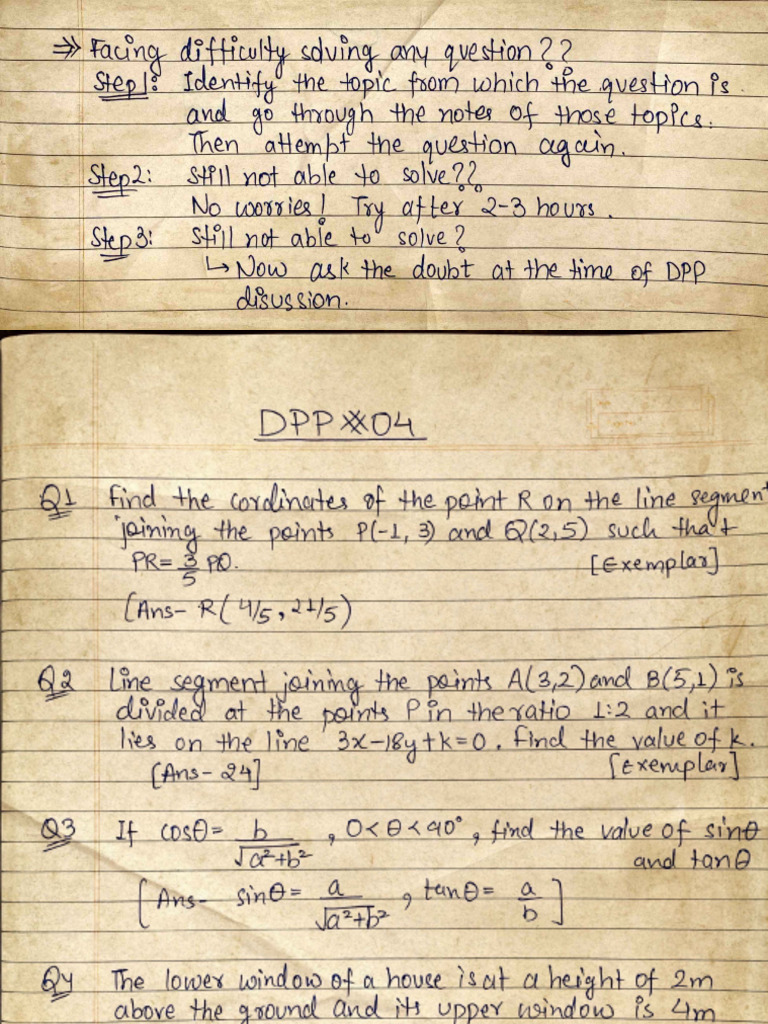 ⇒ Facing difficulty solving any question??
Step1: Identify the topic from which the question is
and go through the notes of those topics.
Then attempt the question again.
Step2: Still not able to solve??
No worries! Try after 2-3 hours.
Step3: Still not able to solve?
↳ Now ask the doubt at the time of DPP
disussion.
DPP#04
Q1 Find the cordinates of the point R on the line segment
joining the points P(-1, 3) and Q(2,5) such that
PR= 3/5 PQ. [Exemplar]
[Ans- R(4/5, 21/5)
Q2 Line segment joining the points A(3,2) and B(5,1) is
divided at the points P in the ratio 1:2 and it
lies on the line 3x-18y+k=0. Find the value of k.
[Ans- 24] [Exemplar]
Q3 If cosθ= b/√a²+b² , 0<θ<90°, find the value of sinθ
and tanθ
[Ans- sinθ= a/√a²+b² , tanθ= a/b]
Q4 The lower window of a house is at a height of 2m
above the ground and its upper window is 4m